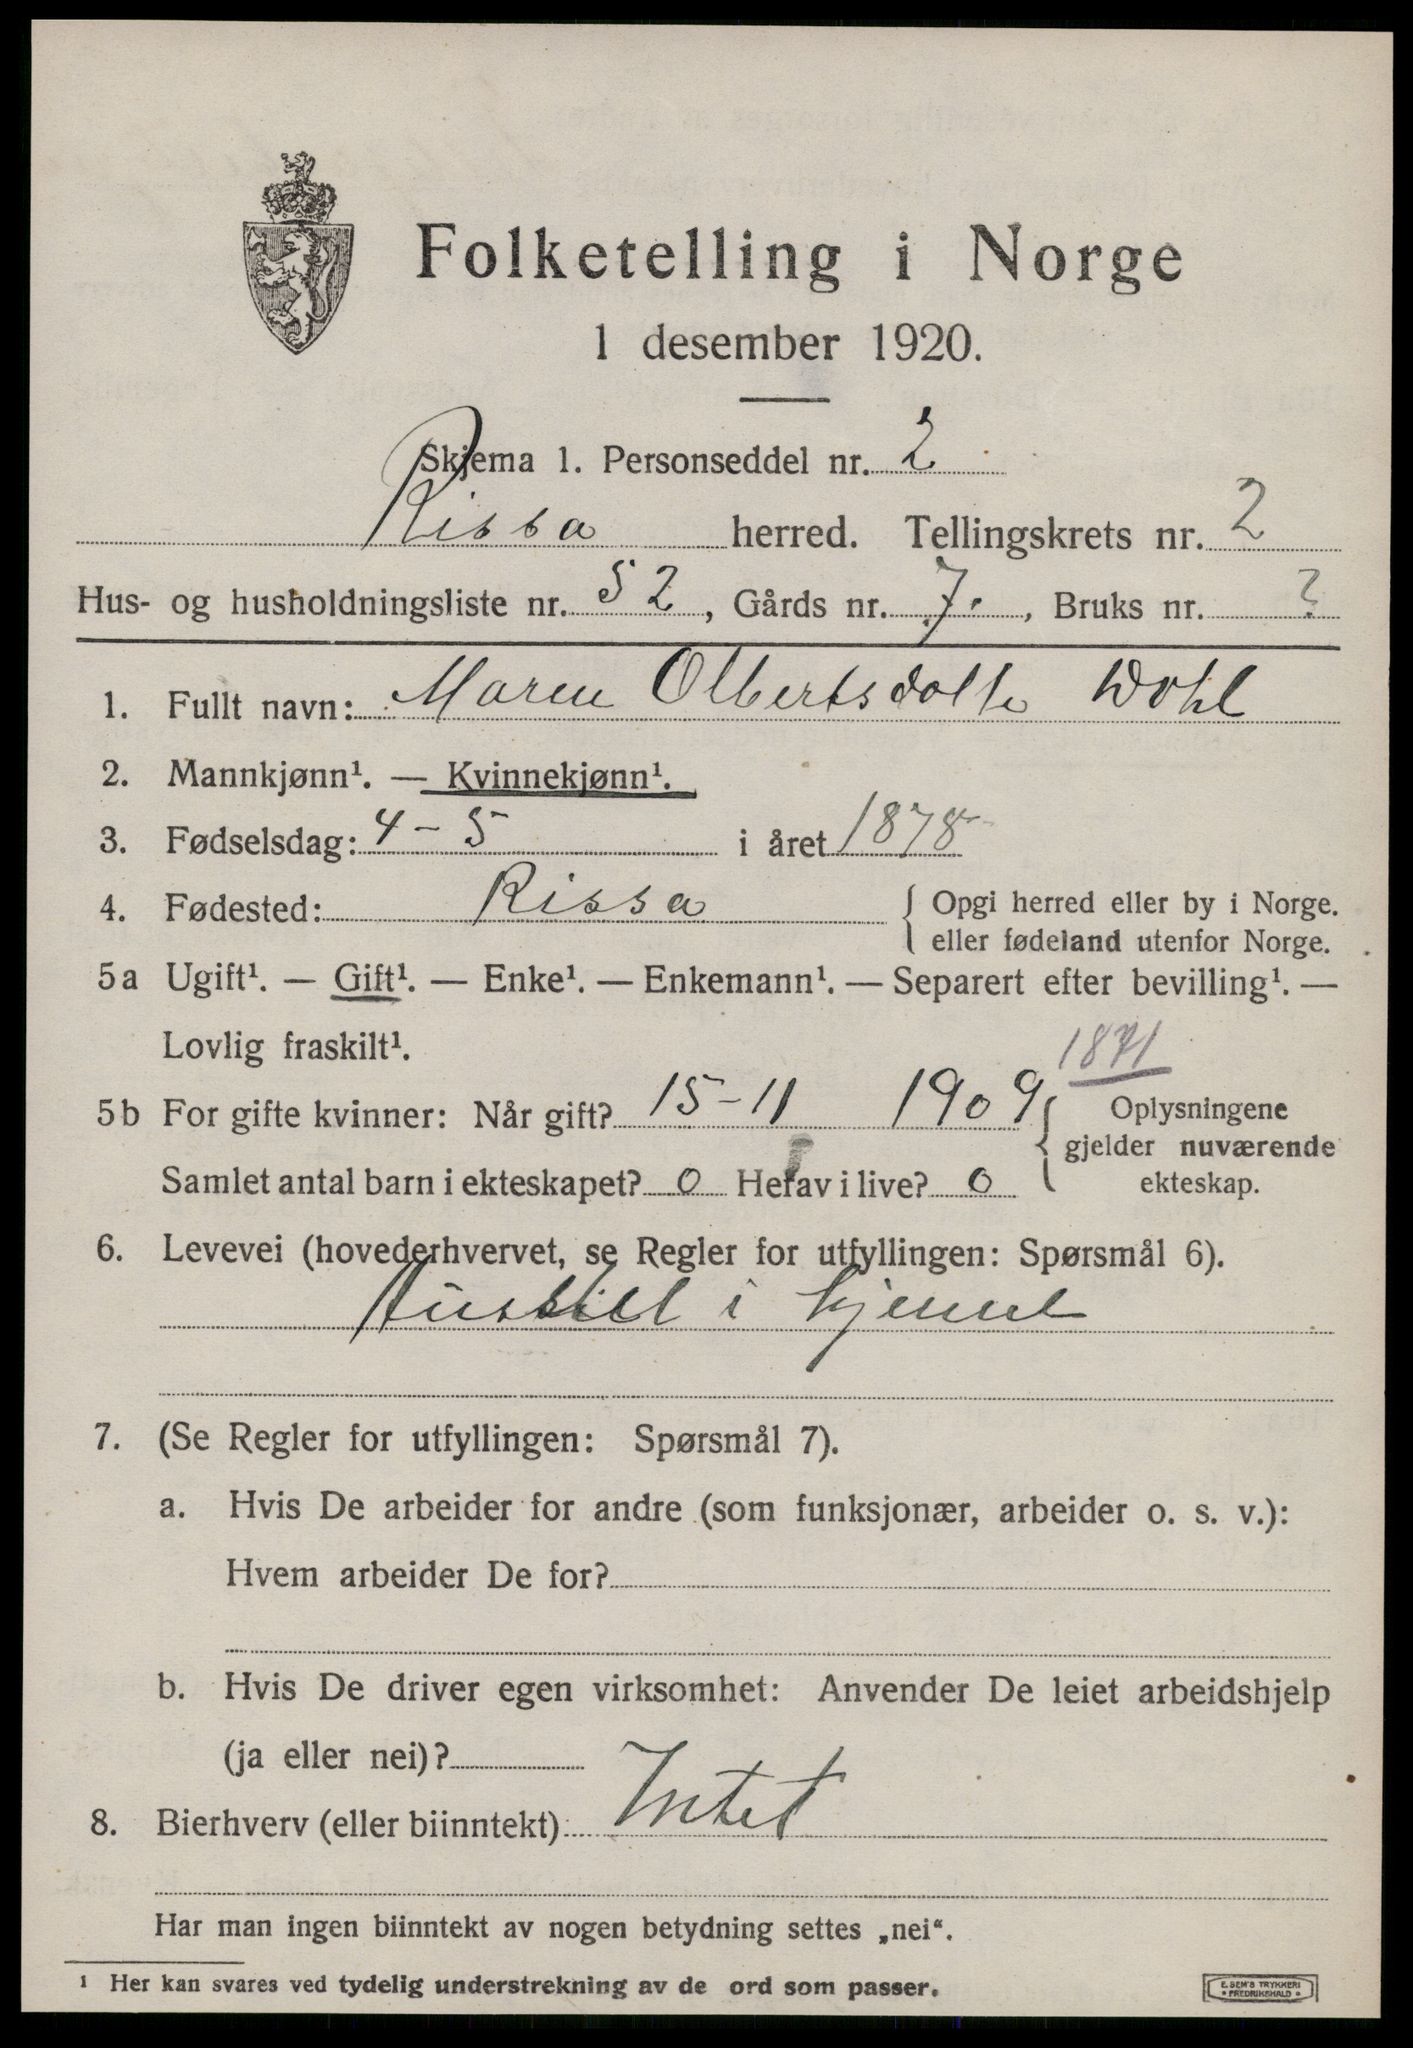 Folketelling i Norge
1 desember 1920.
Skjema 1. Personseddel nr. 2
Rissa herred. Tellingskrets nr. 2
Hus- og husholdningsliste nr. 52, Gårds nr. 7., Bruks nr. ?
1. Fullt navn: Maren Olbertsdotte Wohl
2. Mannkjønn¹. — Kvinnekjønn¹.
3. Fødselsdag: 4-5 i året 1878
4. Fødested: Rissa { Opgi herred eller by i Norge.
eller fødeland utenfor Norge.
5a Ugift¹. — Gift¹. — Enke¹. — Enkemann¹. — Separert efter bevilling¹. —
Lovlig fraskilt¹.
1871
5b For gifte kvinner: Når gift? 15-11 1909 { Oplysningene
gjelder nuværende
Samlet antal barn i ekteskapet? 0 Herav i live? 0 ekteskap.
6. Levevei (hovederhvervet, se Regler for utfyllingen: Spørsmål 6).
Husstell i hjemmet
7. (Se Regler for utfyllingen: Spørsmål 7).
a. Hvis De arbeider for andre (som funksjonær, arbeider o. s. v.):
Hvem arbeider De for?
b. Hvis De driver egen virksomhet: Anvender De leiet arbeidshjelp
(ja eller nei)?
8. Bierhverv (eller biinntekt) Intet
Har man ingen biinntekt av nogen betydning settes „nei“.
¹ Her kan svares ved tydelig understrekning av de ord som passer.
E. SEM'S TRYKKERI
• FREDRIKSHALD •